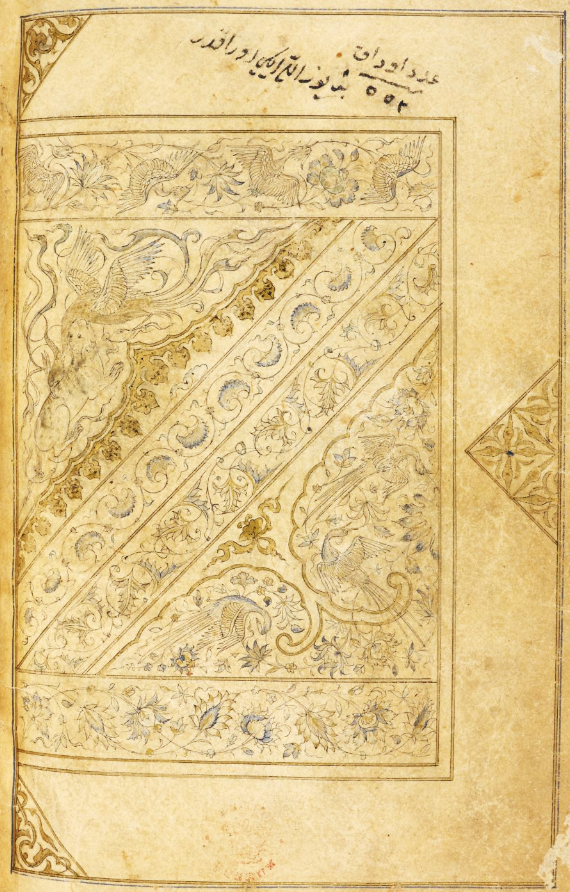 عدد اوراق
٥٥٢
بشيوز اللي ايكي اوراقدر